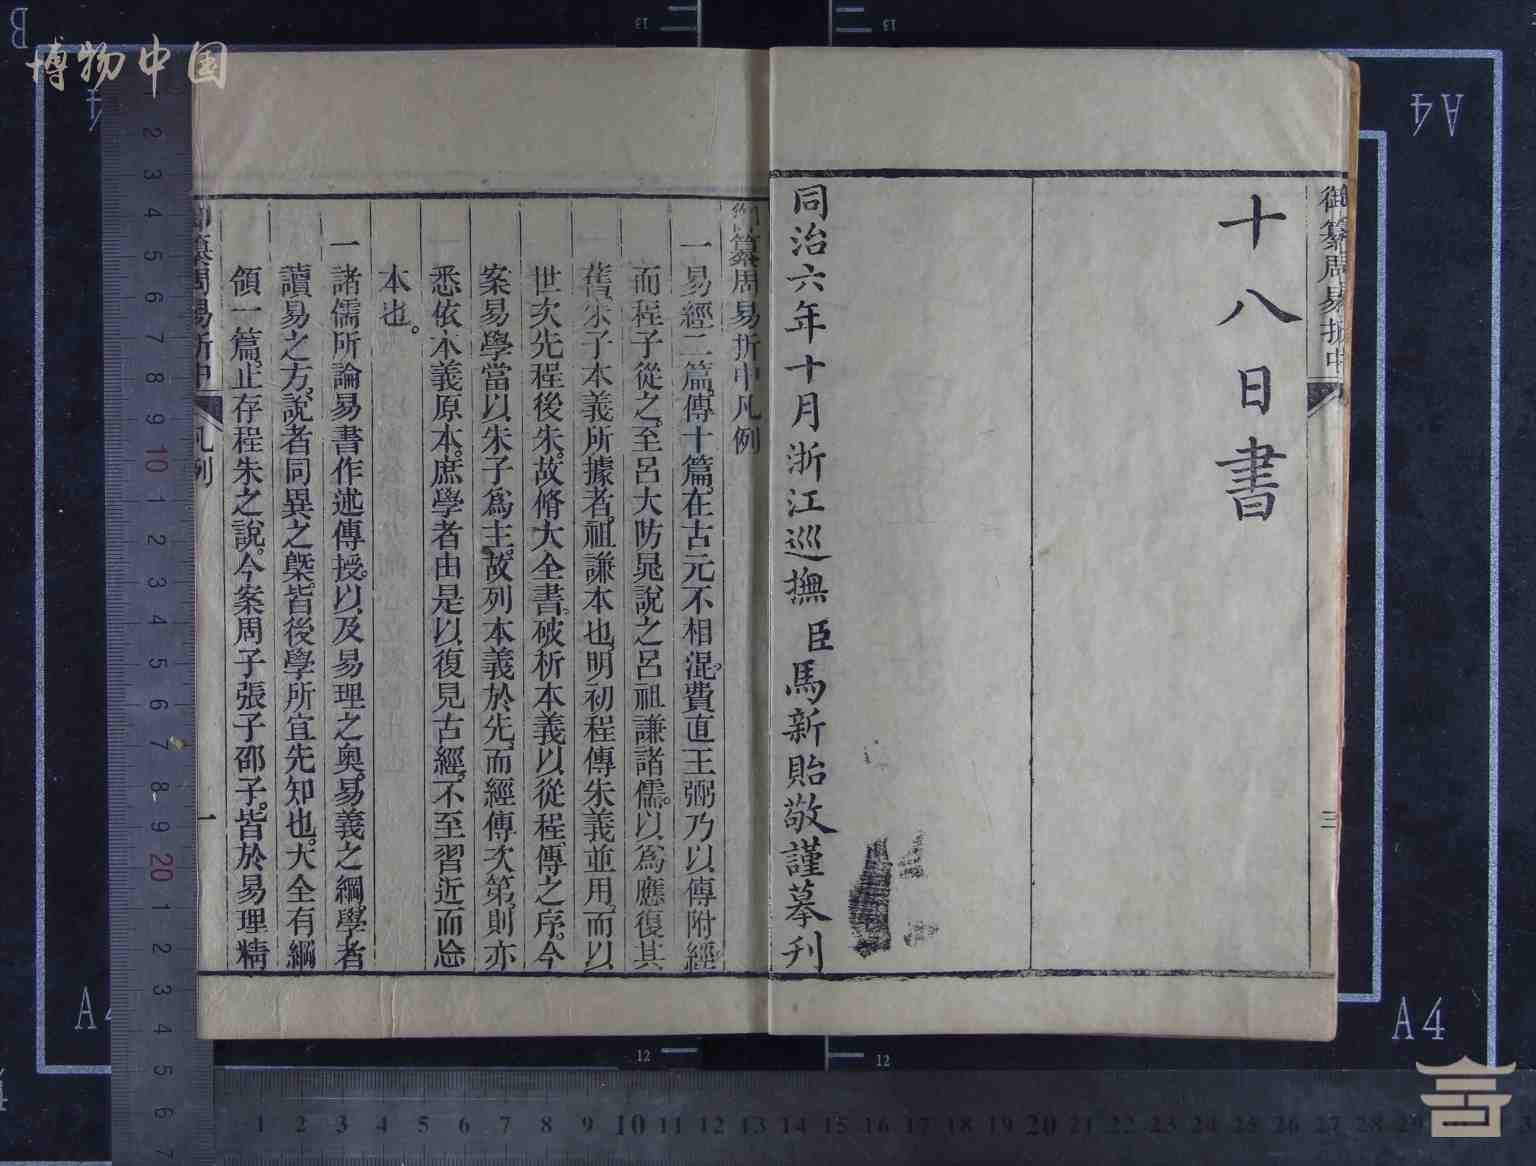 博物中国
御纂周易折中
三
十八日書
同治六年十月浙江巡撫臣馬新貽敬謹摹刋
御纂周易折中凡例
一易經二篇傳十篇在古元不相混費直王弼乃以傳附經
而程子從之至呂大防晁說之呂祖謙諸儒以爲應復其
舊朱子本義所據者祖謙本也明初程傳朱義並用而以
世次先程後朱故脩大全書破析本義以從程傳之序今
案易學當以朱子爲主故列本義於先而經傳次第則亦
悉依本義原本庶學者由是以復見古經不至習近而忘
本也。
一諸儒所論易書作述傳授以及易理之奧易義之綱學者
讀易之方說者同異之槩皆後學所宜先知也大全有綱
領一篇止存程朱之說今案周子張子邵子皆於易理精
御纂周易折中 凡例 一
A4
A4
A4
12
12
13
13
B
2 3 4 5 6 7 8 9 10 1 2 3 4 5 6 7 8 9 20 1 2 3 4 5 6 7
1 2 3 4 5 6 7 8 9 10 11 12 13 14 15 16 17 18 19 20 21 22 23 24 25 26 27 28 29